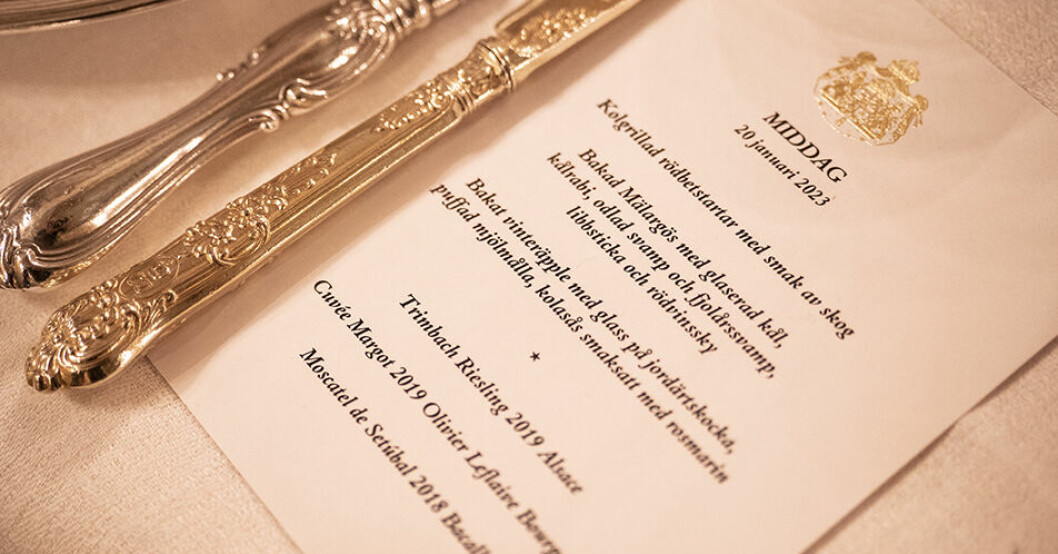 MIDDAG
20 januari 2023
Kolgrillad rödbetstartar med smak av skog
Bakad Mälargös med glaserad kål,
kålrabi, odlad svamp och fjolårssvamp,
libbsticka och rödvinssky
Bakat vinteräpple med glass på jordärtskocka,
puffad mjölmålla, kolasås smaksatt med rosmarin
Trimbach Riesling 2019 Alsace
Cuvée Margot 2019 Olivier Leflaive
Moscatel de Setúbal 2018